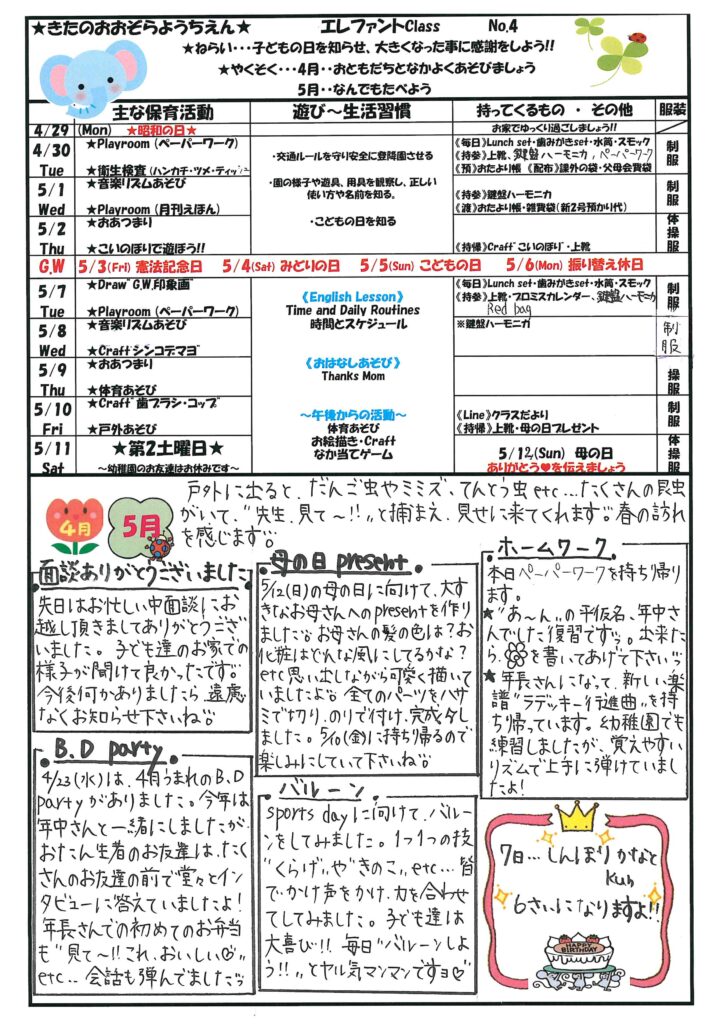 ★きたのおおぞらようちえん★ エレファントClass No.4
★ねらい・・・子どもの日を知らせ、大きくなった事に感謝をしよう!!
★やくそく・・・4月・・おともだちとなかよくあそびましょう
5月・・なんでもたべよう
主な保育活動 遊び～生活習慣 持ってくるもの ・ その他 服装
4/29 (Mon) ★昭和の日★ お家でゆっくり過ごしましょう!!
4/30 Tue
★Playroom (ペーパーワーク)
★衛生検査(ハンカチ・ツメ・ティッシュ
・交通ルールを守り安全に登降園させる
《毎日》Lunch set・歯みがきset・水筒・スモック
《持参》上靴、鍵盤ハーモニカ,ペーパーワーク
《預》おたより帳 《配布》課外の袋・父母会費袋
制服
5/1 Wed
★音楽リズムあそび
★Playroom (月刊えほん)
・園の様子や遊具、用具を観察し、正しい
使い方や名前を知る。
《持参》鍵盤ハーモニカ
《渡》おたより帳・雑費袋(新2号預かり代)
制服
5/2 Thu
★おあつまり
★こいのぼりで遊ぼう!!
・こどもの日を知る
《持帰》Craft゛こいのぼり・上靴
体操服
G.W 5/3(Fri) 憲法記念日 5/4(Sat) みどりの日 5/5(Sun) こどもの日 5/6(Mon) 振り替え休日
5/7 Tue
★Draw゛G.W.印象画
★Playroom (ペーパーワーク)
《English Lesson》
Time and Daily Routines
時間とスケジュール
《毎日》Lunch set・歯みがきset・水筒・スモック
《持参》上靴・プロミスカレンダー、鍵盤ハーモニカ
Red bag
制服
5/8 Wed
★音楽リズムあそび
★Craft゛シンコデマヨ゛
※鍵盤ハーモニカ
制服
5/9 Thu
★おあつまり
★体育あそび
《おはなしあそび》
Thanks Mom
操服
5/10 Fri
★Craft゛歯ブラシ・コップ゛
★戸外あそび
～午後からの活動～
体育あそび
お絵描き・Craft
なか当てゲーム
《Line》クラスだより
《持帰》上靴・母の日プレゼント
制服
5/11 Sat
★第2土曜日★
～幼稚園のお友達はお休みです～
5/12(Sun) 母の日
ありがとう♥を伝えましょう
体操服
4月 5月
戸外に出ると、だんご虫やミミズ、てんとう虫etc...たくさんの昆虫
がいて、“先生、見て～!!„と捕まえ、見せに来てくれます。春の訪れ
を感じます。
面談ありがとうございました
先日はお忙しい中面談にお
越し頂きましてありがとうござ
いました。子ども達のお家での
様子が聞けて良かったです。
今後何かありましたら、遠慮
なくお知らせ下さいね。
母の日 present
5/12(日)の母の日に向けて、大す
きなお母さんへのpresentを作り
ました。お母さんの髪の色は?お
化粧はどんな風にしてるかな?
etc思い出しながら可愛く描いて
いましたよ。全てのパーツをハサ
ミで切り、のりで付け、完成しま
した。5/10(金)に持ち帰るので
楽しみにしていて下さいね。
ホームワーク
本日ペーパーワークを持ち帰り
ます。
★“あ～ん„の平仮名、年中さ
んでした復習ですッ。出来たら
を書いてあげて下さいッ
★年長さんになって、新しい楽
譜“ラデッキー行進曲„を持
ち帰っています。幼稚園でも
練習しましたが、覚えやすい
リズムで上手に弾けていまし
たよ!
B.D party
4/23(水)は、4月うまれのB.D
partyがありました。今年は
年中さんと一緒にしましたが、
おたん生者のお友達は、たく
さんのお友達の前で堂々とイン
タビューに答えていましたよ!
年長さんでの初めてのお弁当
も“見て～!!これ、おいしい♡„
etc... 会話も弾んでましたッ
バルーン
sports dayに向けて、バルー
ンをしてみました。1つ1つの技
“くらげ„や“きのこ„etc...皆
でかけ声をかけ、力を合わせ
てしてみました。子ども達は
大喜び!! 毎日“バルーンしよ
う!!„とヤル気マンマンですョ♡
7日... しんぼり かなと
kun
6さいになりますよ!!
HAPPY BIRTHDAY